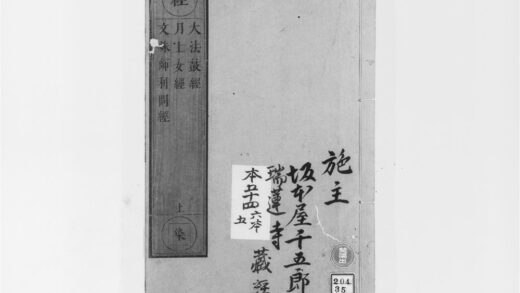 施主
坂本屋千五郎
瑞蓮寺 藏
本五十四 六本
五
經
大法鼓經
月上女經
文殊師利問經
上
染
204
35